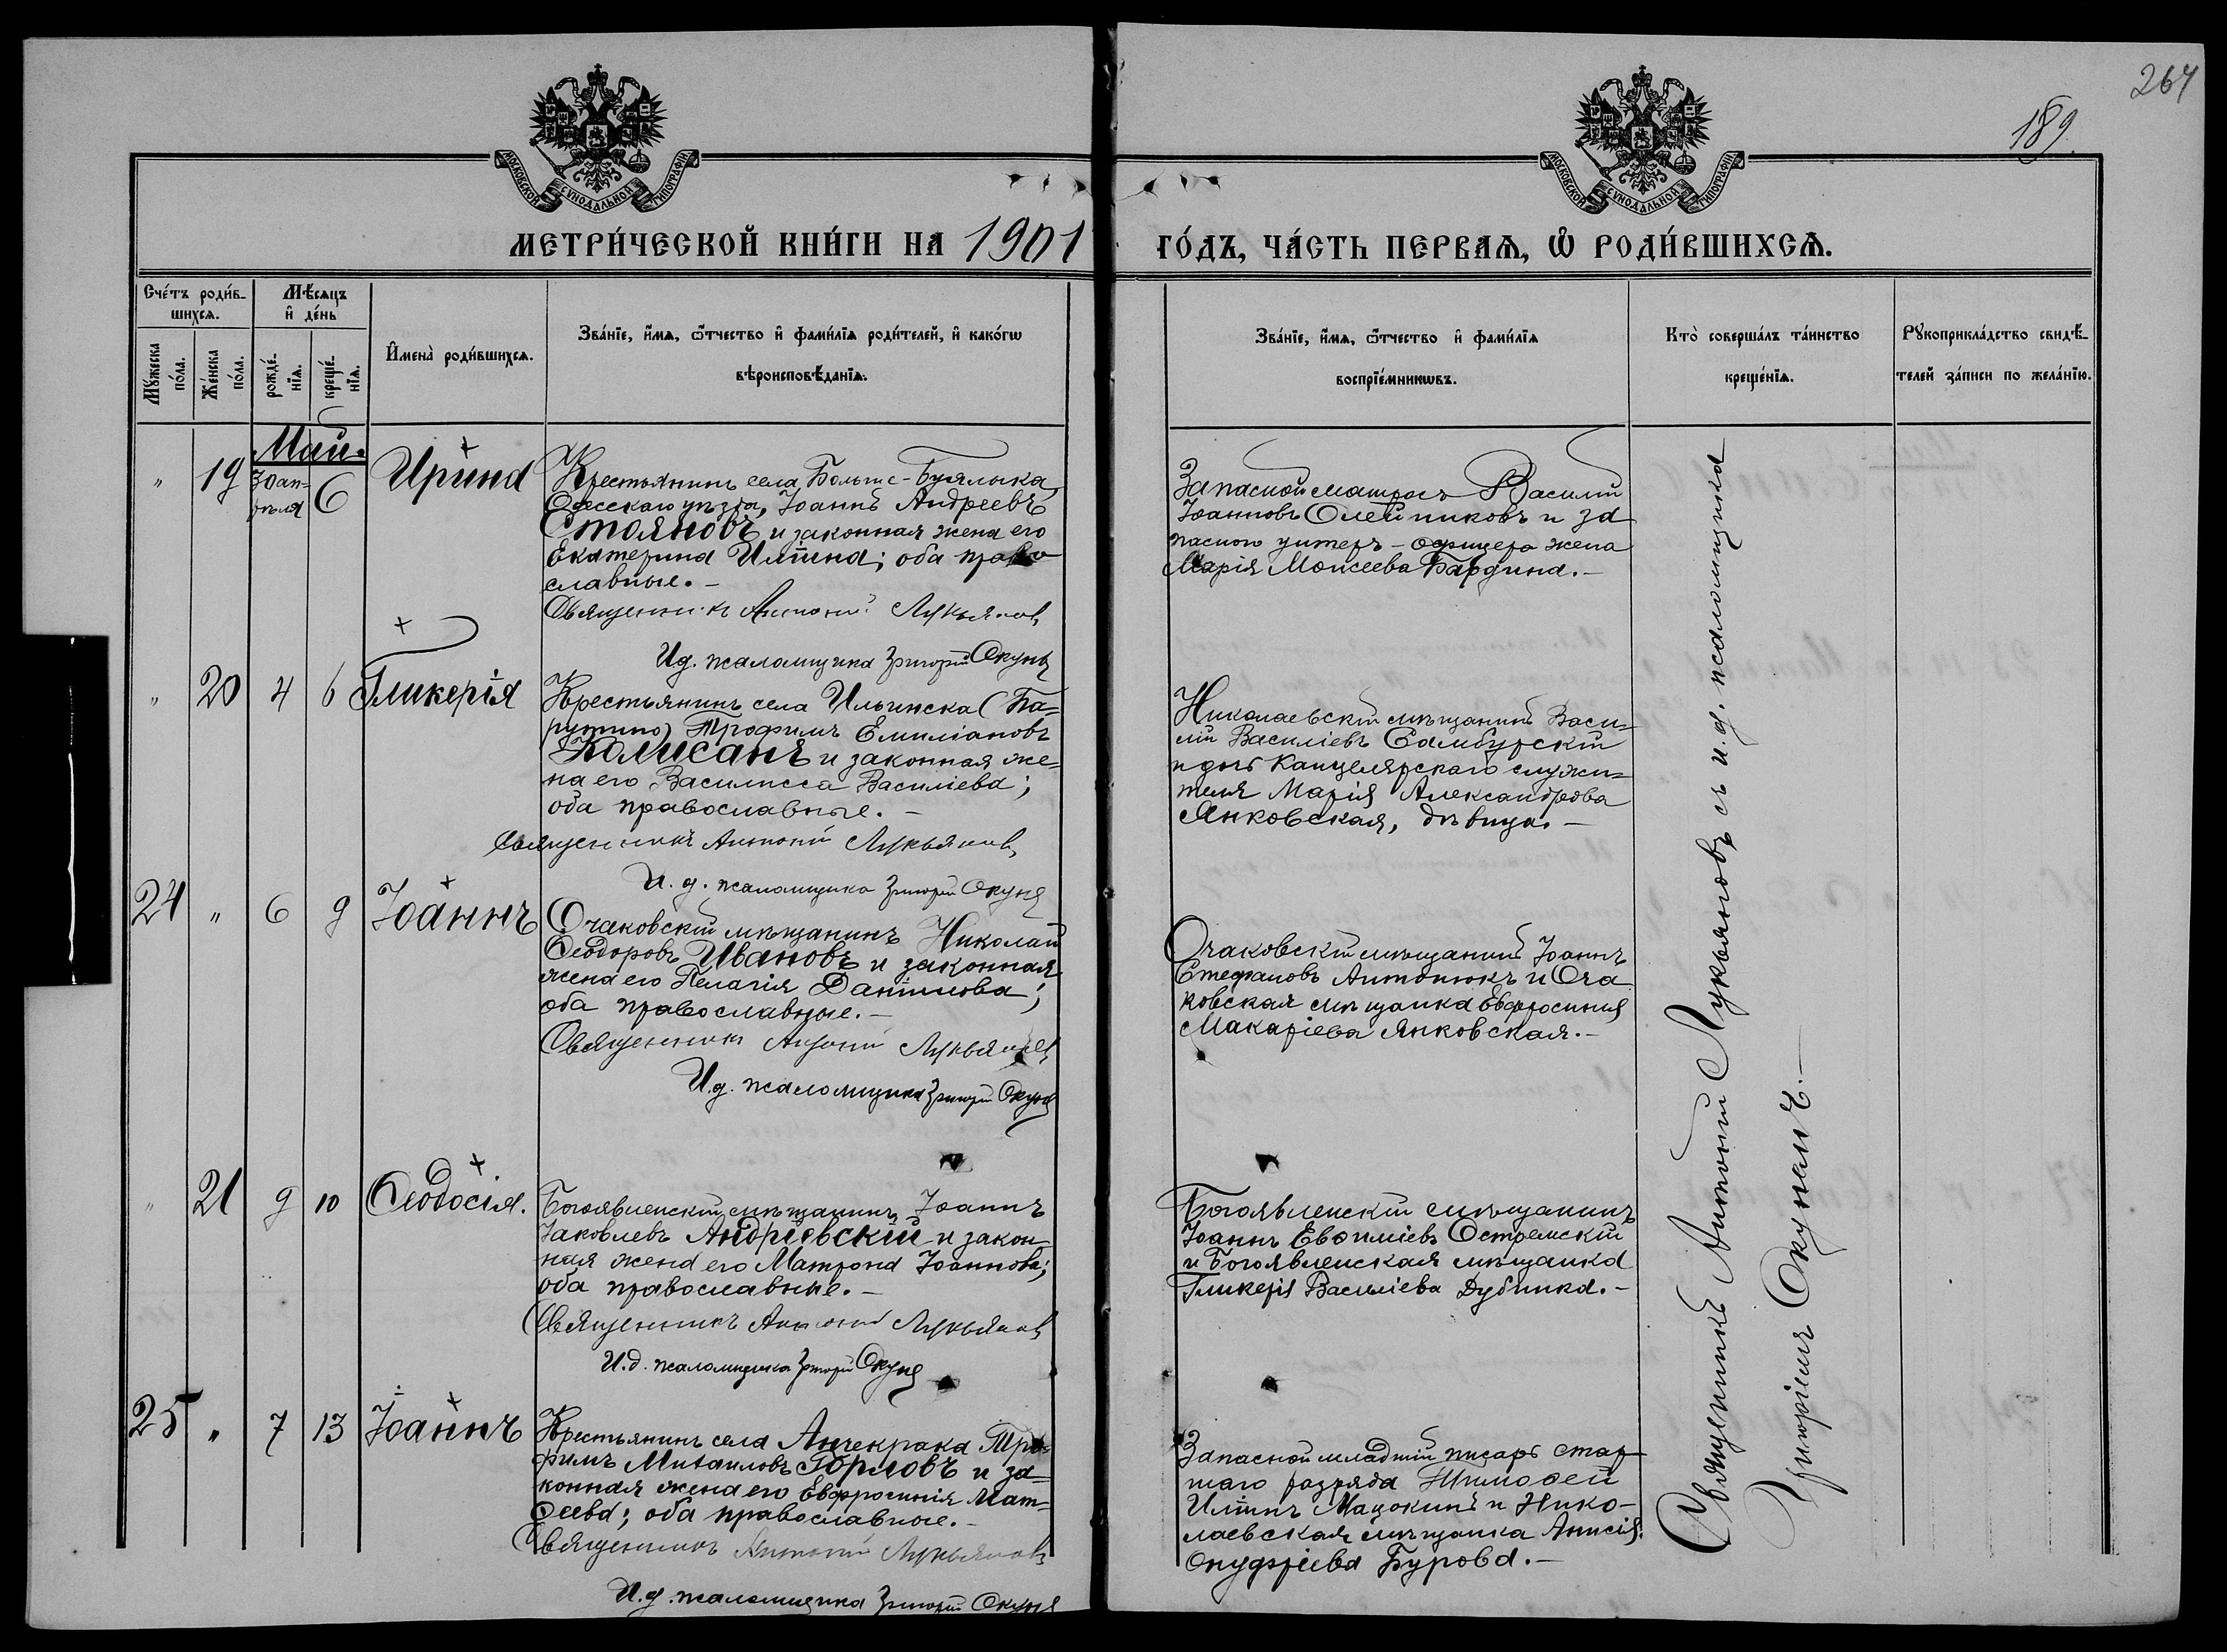 264
189.
МОСКОВСКОЙ СѴНОДАЛЬНОЙ ТИПОГРАФІИ
МОСКОВСКОЙ СѴНОДАЛЬНОЙ ТИПОГРАФІИ
МЕТРИ́ЧЕСКОЙ КНИ́ГИ НА 1901 ГО́ДЪ, ЧА́СТЬ ПЕРВАѦ, Ѡ҆ РОДИ́ВШИХСѦ.
Сче́тъ роди́в-
шихсѧ.
Мꙋ́жеска по́ла.
Же́нска по́ла.
Мѣ́сѧцъ
и҆ де́нь
рожде́-
нїѧ.
креще́-
нїѧ.
И҆мена̀ роди́вшихсѧ.
Зва́нїе, и҆́мѧ, ѻ҆́тчество и҆ фами́лїѧ роди́телей, и҆ како́гѡ
вѣроисповѣ́данїѧ.
Зва́нїе, и҆́мѧ, ѻ҆́тчество и҆ фами́лїѧ
воспрїе́мникѡвъ.
Кто̀ соверша́лъ та́инство
креще́нїѧ.
Рꙋкоприкла́дство свидѣ́-
телей за́писи по жела́нїю.
Май.
" 19 30 ап-
рѣля 6 Ирина
Крестьянинъ села Больше-Буялыка,
Одесскаго уѣзда, Іоаннъ Андреевъ
Стояновъ и законная жена его
Екатерина Иліина; оба право
славные.-
Священникъ Антоній Лукьяновъ
И.д. псаломщика Григорій Окунь
Запасной матросъ Василій
Іоанновъ Олейниковъ и за
паснаго унтеръ-офицера жена
Марія Моисеева Бардина.-
" 20 4 6 Гликерія
Крестьянинъ села Ильинска (Па-
рутино) Трофимъ Емиліановъ
Колисанъ и законная же-
на его Василисса Василіева;
оба православные.-
Священникъ Антоній Лукьяновъ
И.д. псаломщика Григорій Окунь
Николаевскій мѣщанинъ Васи-
лій Василіевъ Самбурскій
и дочь канцелярскаго служи-
теля Марія Александрова
Янковская, дѣвица.-
24 " 6 9 Іоаннъ
Очаковскій мѣщанинъ Николай
Ѳеодоровъ Ивановъ и законная
жена его Пелагія Даніилова;
оба православные.-
Священникъ Антоній Лукьяновъ
И.д. псаломщика Григорій Окунь
Очаковскій мѣщанинъ Іоаннъ
Стефановъ Антонюкъ и Оча
ковская мѣщанка Евфросинія
Макаріева Янковская.-
" 21 9 10 Ѳеодосія.
Богоявленскій мѣщанинъ Іоаннъ
Іаковлевъ Андріевскій и закон-
ная жена его Матрона Іоаннова;
оба православные.-
Священникъ Антоній Лукьяновъ
И.д. псаломщика Григорій Окунь
Богоявленскій мѣщанинъ
Іоаннъ Евѳиміевъ Островскій
и Богоявленская мѣщанка
Гликерія Василіева Дубинка.-
25 " 7 13 Іоаннъ
Крестьянинъ села Анчекрака Тро-
фимъ Михаиловъ Горловъ и за-
конная жена его Евфросинія Мат-
ѳеева; оба православные.-
Священникъ Антоній Лукьяновъ
И.д. псаломщика Григорій Окунь
Запасной младшій писарь стар-
шаго разряда Тимоѳей
Иліинъ Мацокинъ и Нико-
лаевская мѣщанка Анисія
Онуфріева Бурова.-
Священникъ Антоній Лукьяновъ съ и.д. псаломщика
Григоріемъ Окунемъ.-